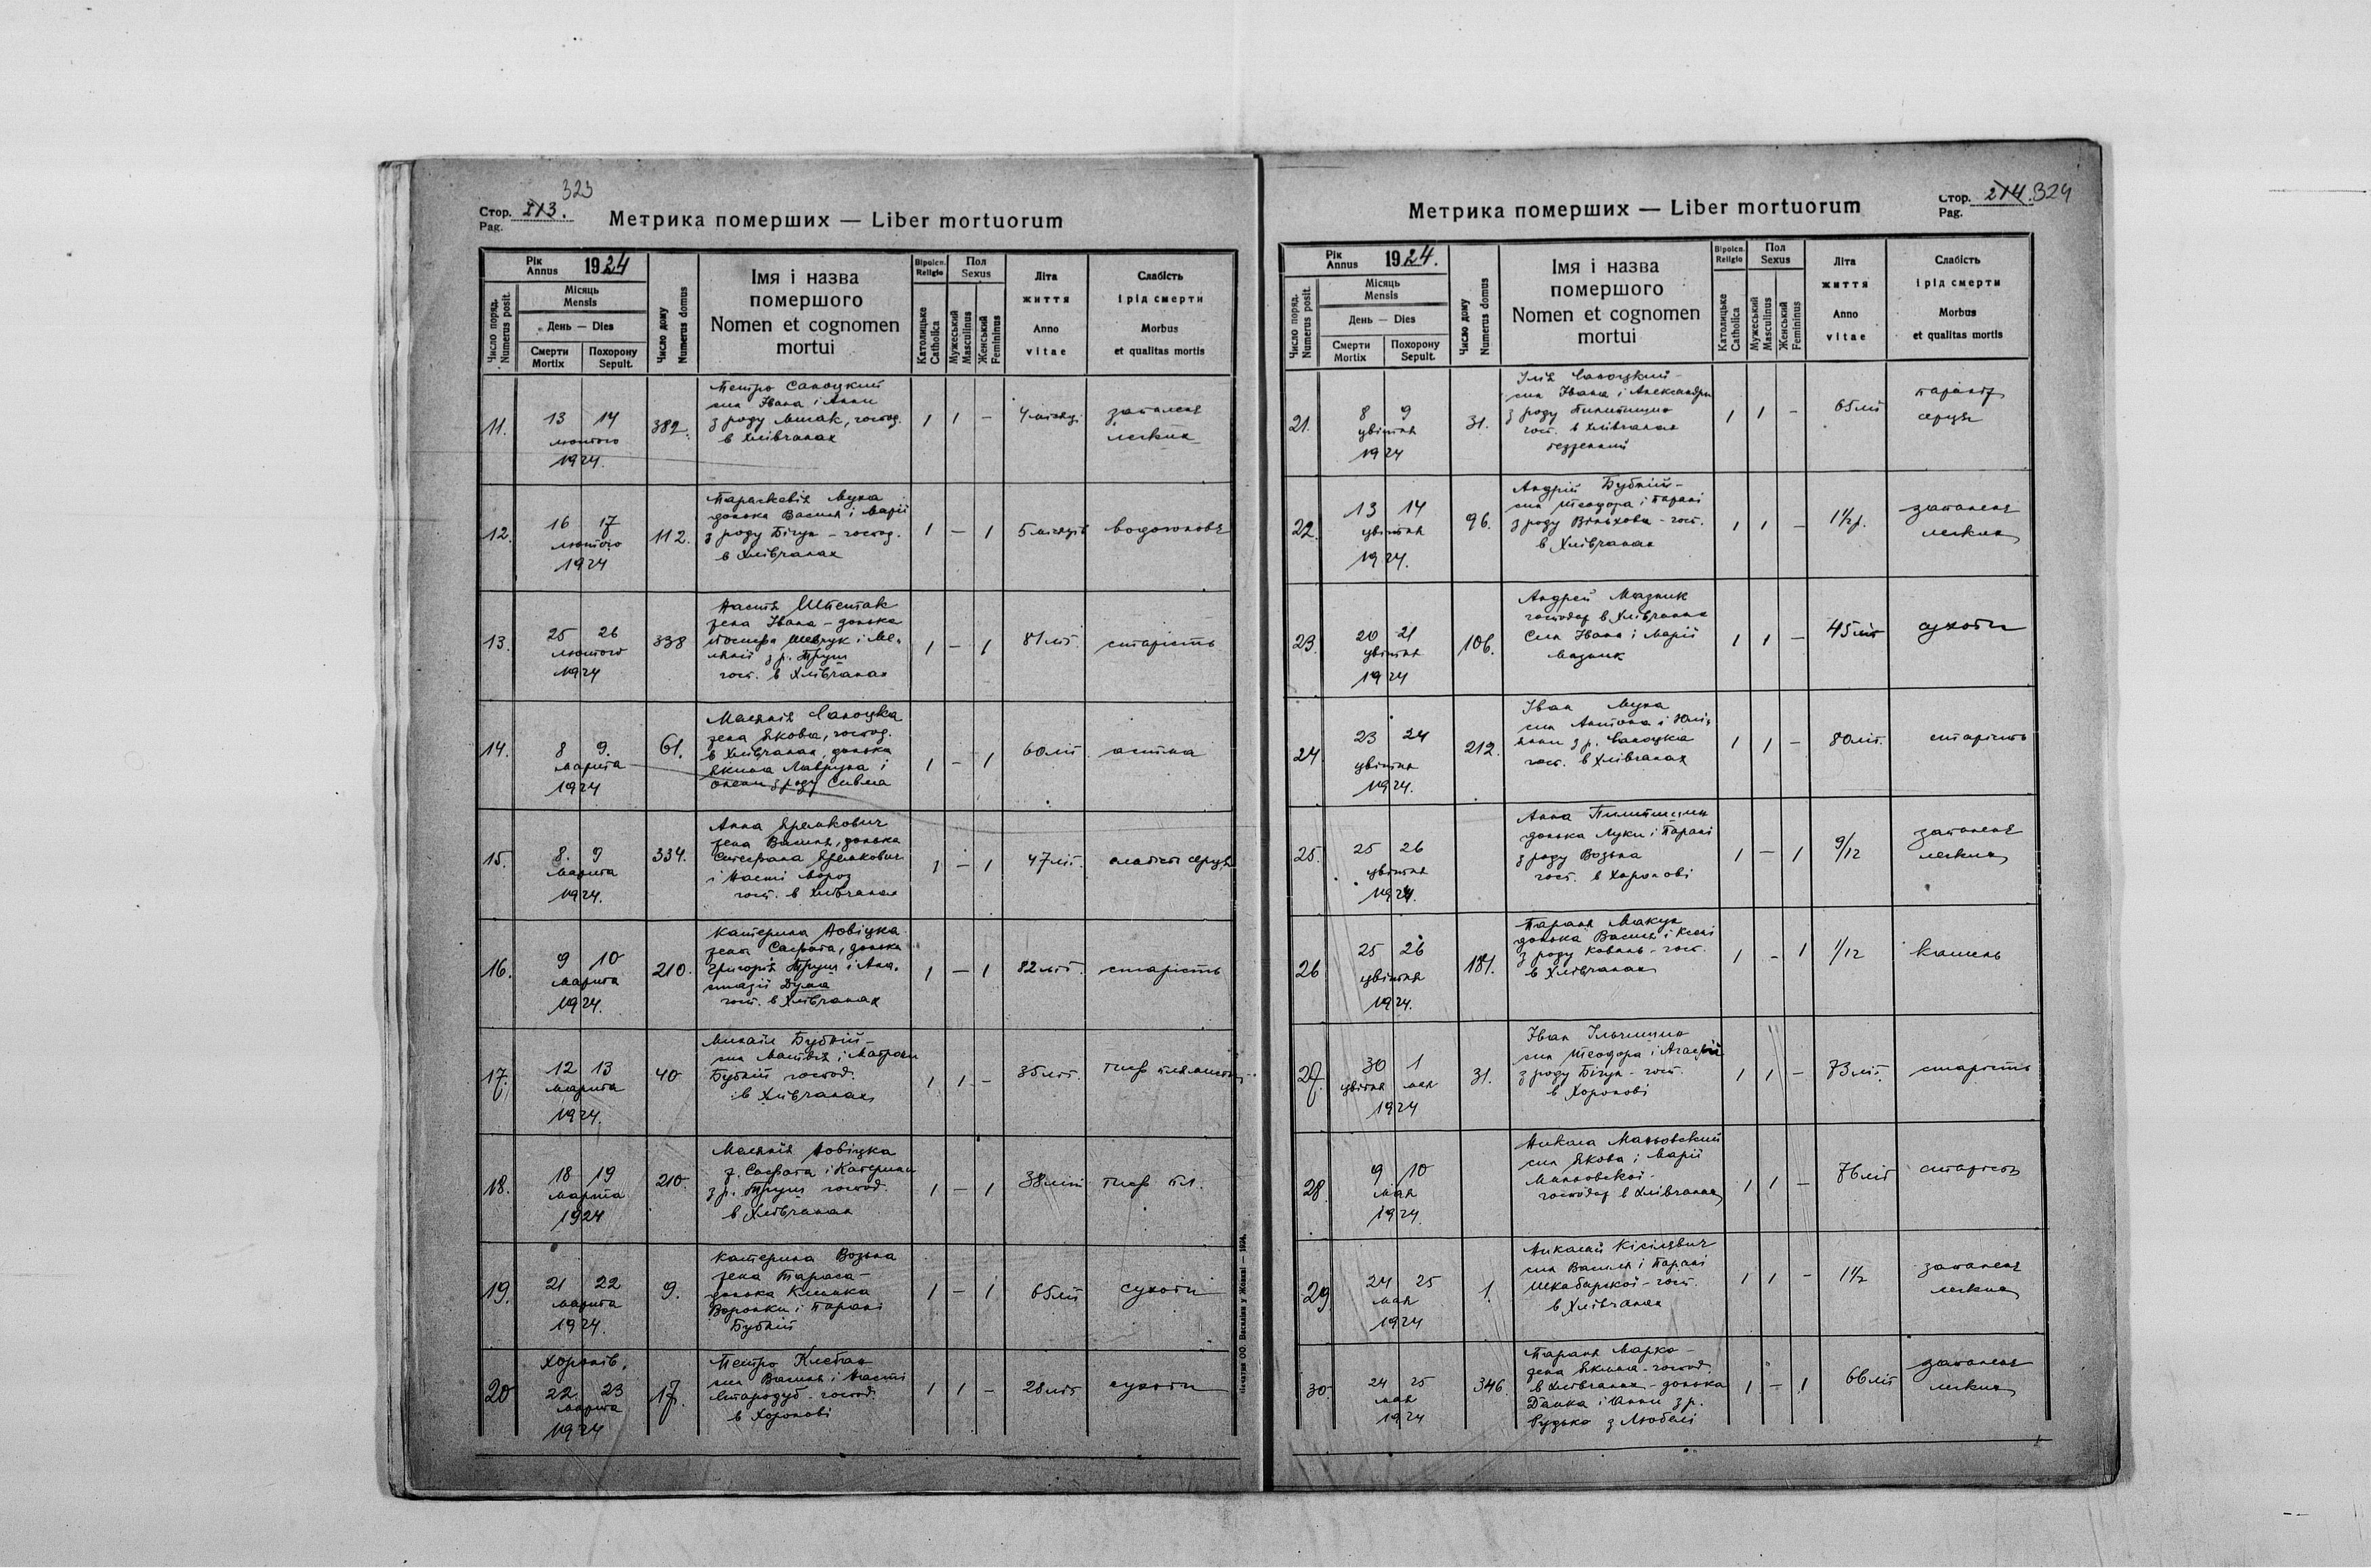 323
Стор. 213.
Pag.
Метрика померших — Liber mortuorum
Рік
Annus 1924
Число поряд.
Numerus posit.
Місяць
Mensis
День — Dies
Смерти
Mortix
Похорону
Sepult.
Число дому
Numerus domus
Імя і назва
помершого
Nomen et cognomen
mortui
Віроісп.
Religio
Католицьке
Catholica
Пол
Sexus
Мужеський
Masculinus
Женський
Femininus
Літа
життя
Anno
vitae
Слабість
і рід смерти
Morbus
et qualitas mortis
11.
13 14
лютого
1924.
382.
Петро Саноцкий
син Івана і Анни
з роду Мшак, господ.
в Хлівчанах
1 1 –
4 місяці
запаленя
легких
12.
16 17
лютого
1924
112.
Параскевія Муха
донька Василя і Марії
з роду Бігун – господ.
в Хлівчанах
1 – 1
5 місяців
водоголовя
13.
25 26
лютого
1924
338
Настя
жена Івана – донька
Йосифа Шевчук і Ме-
ланії з р. Трущ
госп. в Хлівчанах
1 – 1
81 літ.
старість
14.
8 9.
марта
1924
61.
Меланія Саноцка
жена Якова, господ.
в Хлівчанах, донька
Якима Лаврука і
Олени з роду Сивма
1 – 1
60 літ
астма
15.
8. 9
марта
1924.
334.
Анна Яремкович
жена Василя, донька
Стефана Яремкович
і Насті Мороз
госп. в Хлівчанах
1 – 1
47 літ.
слабість серця
16.
9 10
марта
1924.
210.
Катерина Новіцка
жена Сафата, донька
Григорія Трущ і Ана-
стазії Дума
госп. в Хлівчанах
1 – 1
82 літ.
старість
17.
12 13
марта
1924.
40
Михайло Бубній –
син Матвія і Матрони
Бубній господ.
в Хлівчанах
1 1 –
35 літ.
тиф плямистий
18.
18 19
марта
1924
210.
Меланія Новіцка
д. Сафата і Катерини
з р. Трущ господ.
в Хлівчанах
1 – 1
38 літ
тиф пл.
19.
21 22
марта
1924.
9.
Катерина Возьна
жена Тараса –
донька Климка
Воронки і Парані
Бубній
1 – 1
65 літ
сухоти
20
Хоронів.
22 23
марта
1924
17.
Петро Клебан
син Василя і Насті
Стародуб – господ.
в Хоронові
1 1 –
28 літ
сухоти
Друкарня ОО. Василіян у Жовкві — 1924.
Метрика померших — Liber mortuorum
Стор. 214. 324
Pag.
Рік
Annus 1924.
Число поряд.
Numerus posit.
Місяць
Mensis
День — Dies
Смерти
Mortix
Похорону
Sepult.
Число дому
Numerus domus
Імя і назва
помершого
Nomen et cognomen
mortui
Віроісп.
Religio
Католицьке
Catholica
Пол
Sexus
Мужеський
Masculinus
Женський
Femininus
Літа
життя
Anno
vitae
Слабість
і рід смерти
Morbus
et qualitas mortis
21.
8 9
цвітня
1924
31.
Ілія Саноцкий –
син Івана і Александри
з роду Пилипишин
госп. в Хлівчанах
1 1 –
65 літ
параліж
серця
22.
13 14
цвітня
1924.
96.
Андрій Бубній –
син Теодора і Парані
з роду Вільхова – госп.
в Хлівчанах
1 1 –
1½ р.
запаленя
легких
23.
20 21
цвітня
1924
106.
Андрей Мазник
господар в Хлівчанах
Син Івана і Марії
Мазник
1 1 –
45 літ
сухоти
24.
23 24
цвітня
1924.
212.
Іван Муха
син Антона і Юлі-
янни з р. Саноцка
госп. в Хлівчанах
1 1 –
80 літ.
старість
25.
25 26
цвітня
1924.
Анна Пилипишин
донька Луки і Парані
з роду Возьна
госп. в Хоронові
1 – 1
9/12
запаленя
легких
26
25 26
цвітня
1924.
181.
Параня Макух
донька Василя і Ксені
з роду Коваль – госп.
в Хлівчанах
1 – 1
1/12
кашель
27.
30 1
цвітня мая
1924
31.
Іван Ільчишин
син Теодора і Агафії
з роду Бігун – госп.
в Хоронові
1 1 –
73 літ.
старість
28.
9 10
мая
1924.
Никола Маньовский
син Якова і Марії
Маньовскої –
господар в Хлівчанах
1 1 –
76 літ
старість
29.
24 25
мая
1924
1.
Николай Кісілевич
син Василя і Парані
– госп.
в Хлівчанах
1 1 –
1½
запаленя
легких
30.
24 25
мая
1924
346.
Параня Марко –
жена Якима – господ.
в Хлівчанах – донька
Данка і Анни з р.
Рудько з Любелі
1 – 1
66 літ
запаленя
легких